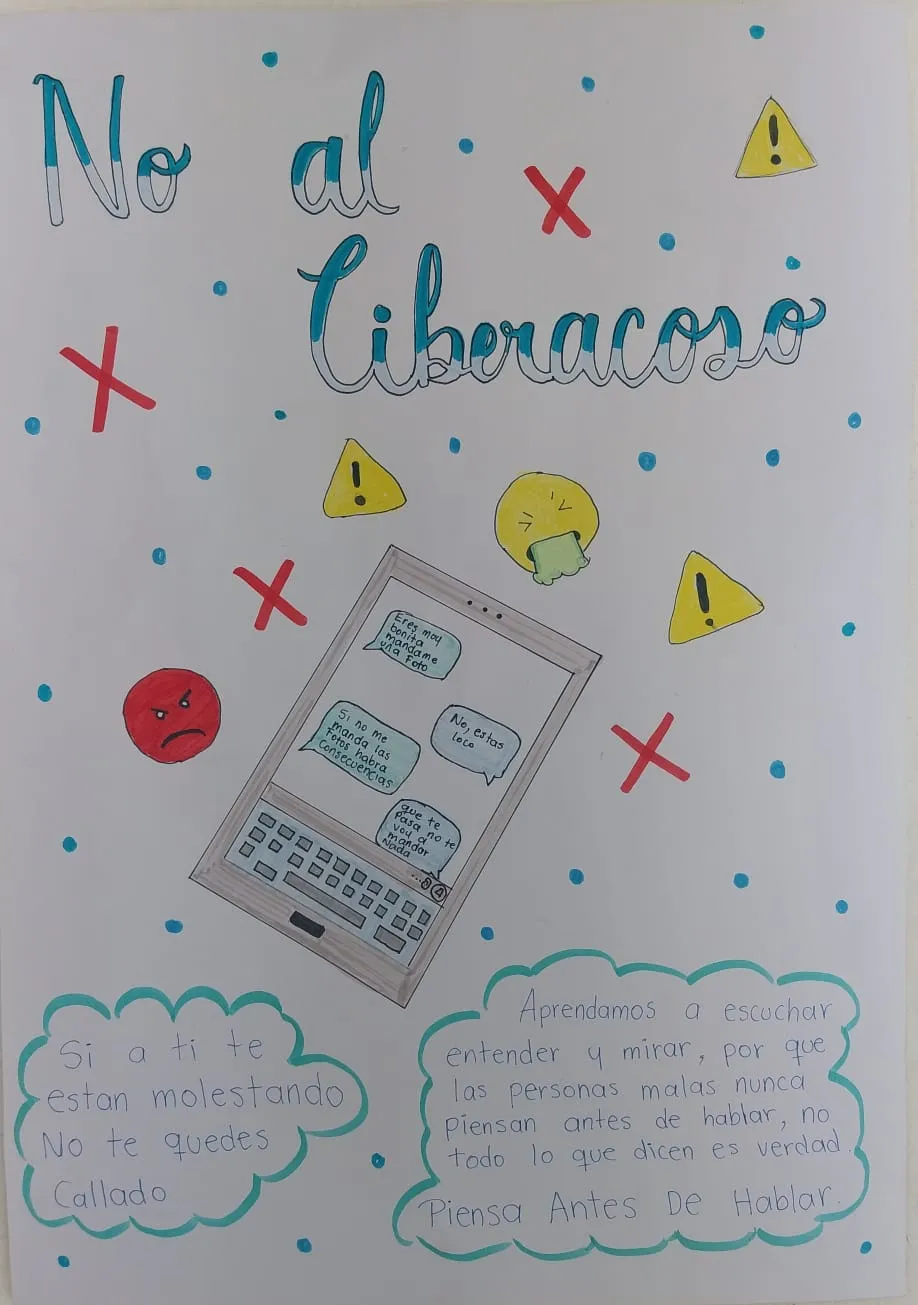 No al
Ciberacoso
!
!
!
Eres muy
bonita
mandame
una Foto
No, estas
loco
Si no me
manda las
Fotos habra
Consecuencias
que te
Pasa no te
voy a
mandar
Nada
Si a ti te
estan molestando
No te quedes
Callado
Aprendamos a escuchar
entender y mirar, por que
las personas malas nunca
piensan antes de hablar, no
todo lo que dicen es verdad.
Piensa Antes De Hablar.